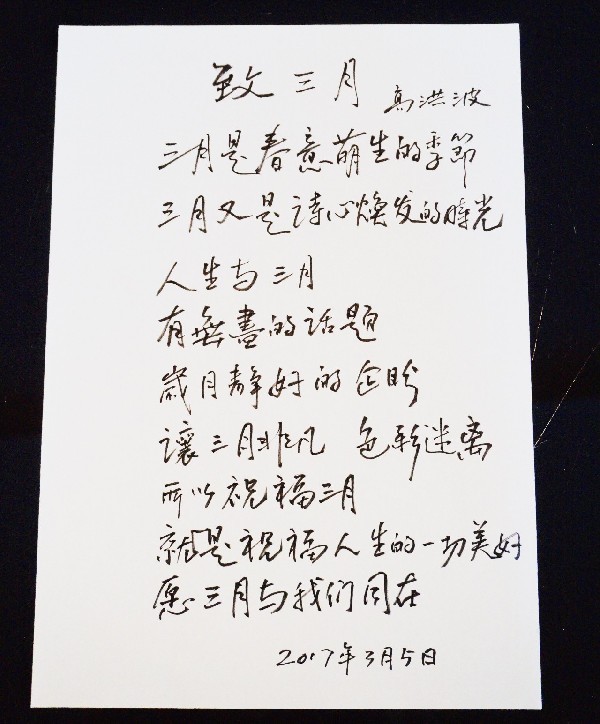 致三月
高洪波
三月是春意萌生的季節
三月又是诗心焕发的時光
人生与三月
有無盡的话题
歲月静好的企盼
讓三月非凡 色彩迷离
所以祝福三月
就是祝福人生的一切美好
愿三月与我们同在
2017年3月5日